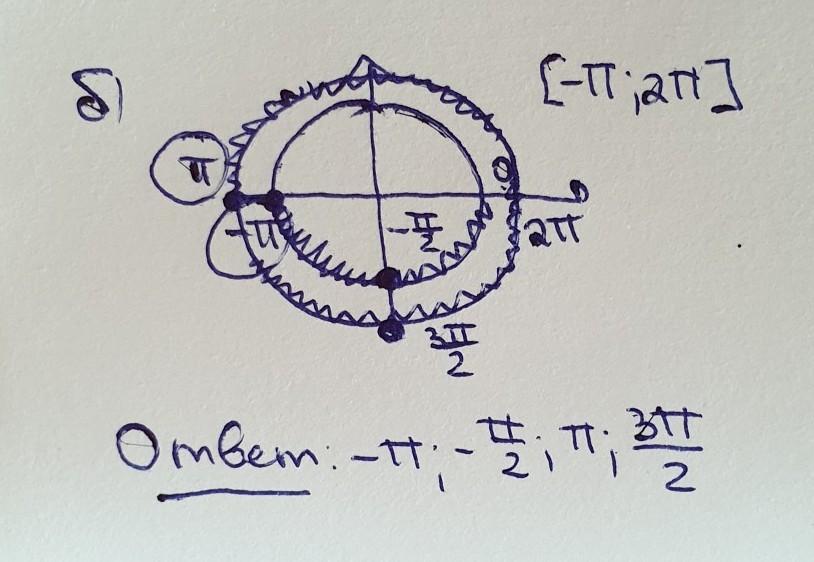 б) [-π; 2π]
π 0
-π -π/2 2π
3π/2
Ответ: -π; -π/2; π; 3π/2